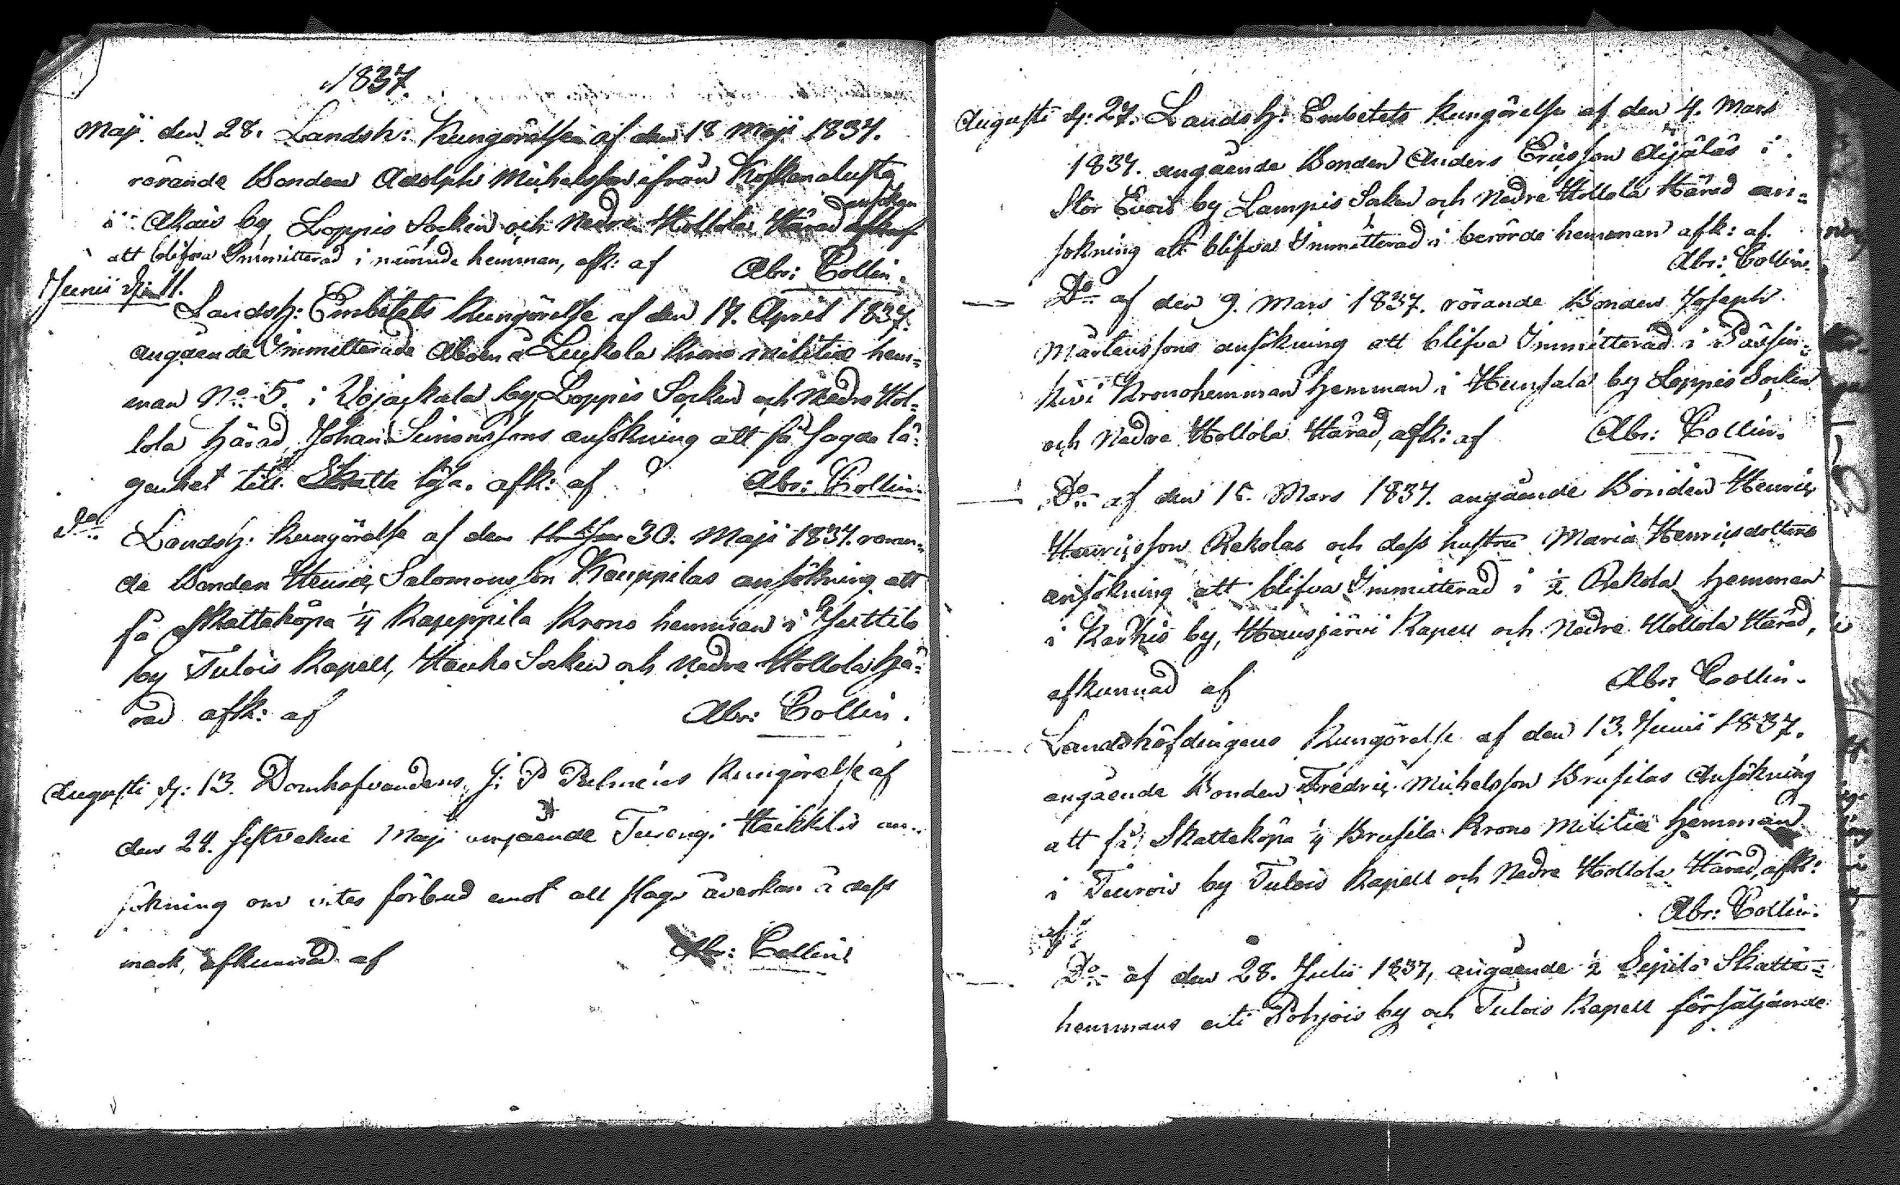 1837.
Maji den 28. Landsh: Kungörelse af den 18 Maji 1837.
rörande Bonden Adolph Michelsson ifrån Koskenalusta
ansökan
i Akais by Loppis Socken och Nedre Hollola Härad
att blifva Immitterad i nämnde hemman, afk: af Abr: Collin.
Junii d: 11.
Landsh: Embetets Kungörelse af den 17. April 1837.
angående Immitterade Åboen å Luckola Krono militiæ hem=
man No 5. i Wojaskala by Loppis Socken och Nedre Hol=
lola härad, Johan Simonssons ansökning att få sagde lä=
genhet till Skatte lösa. afk: af Abr: Collin.
Do Landsh: Kungörelse af den 30. Maji 1837. röran=
de Bonden Henric Salomonsson Kauppilas ansökning att
få Skatteköpa 1/4 Kauppila Krono hemman i Juttila
by Tulois Kapell, Hauho Socken och Nedre Hollola Hä=
rad afk: af Abr: Collin.
Augusti d: 13. Domhafvandens, J: P Palméns Kungörelse af
den 24. sistvekne Maji angående Turengi Heikkilä an=
sökning om vites förbud emot all slags åverkan å dess
mark, afkunnad af Abr: Collin
Augusti d: 27. Landsh: Embetets Kungörelse af den 4. Mars
1837. angående Bonden Anders Ericsson Äijäläs i
Stor Evois by Lampis Socken och Nedre Hollola Härad an=
sökning att blifva Immitterad i berörde hemman afk: af
Abr: Collin.
Do af den 9. Mars 1837. rörande Bonden Joseph
Mårtenssons ansökning att blifva Immitterad i Pässin=
kivi Kronohemman hemman i Hunsala by Loppis Socken
och Nedre Hollola Härad, afk: af Abr: Collin.
Do af den 15. Mars 1837. angående Bonden Henric
Henricsson Rekolas och dess hustru Maria Henricsdotters
ansökning att blifva Immitterad i 1/2 Rekola hemman
i Karhis by, Hausjärvi Kapell och Nedre Hollola Härad,
afkunnad af Abr: Collin.
Landshöfdingens Kungörelse af den 13. Junii 1837.
angående Bonden Fredric Michelsson Brusilas Ansökning
att få Skatteköpa 1/4 Brusila Krono Militiæ hemman
i Teurois by Tulois Kapell och Nedre Hollola Härad, afk:
af Abr: Collin.
Do af den 28. Julii 1837, angående 1/2 Sipilä Skatte=
hemmans uti Pohjois by och Tulois Kapell försäljande